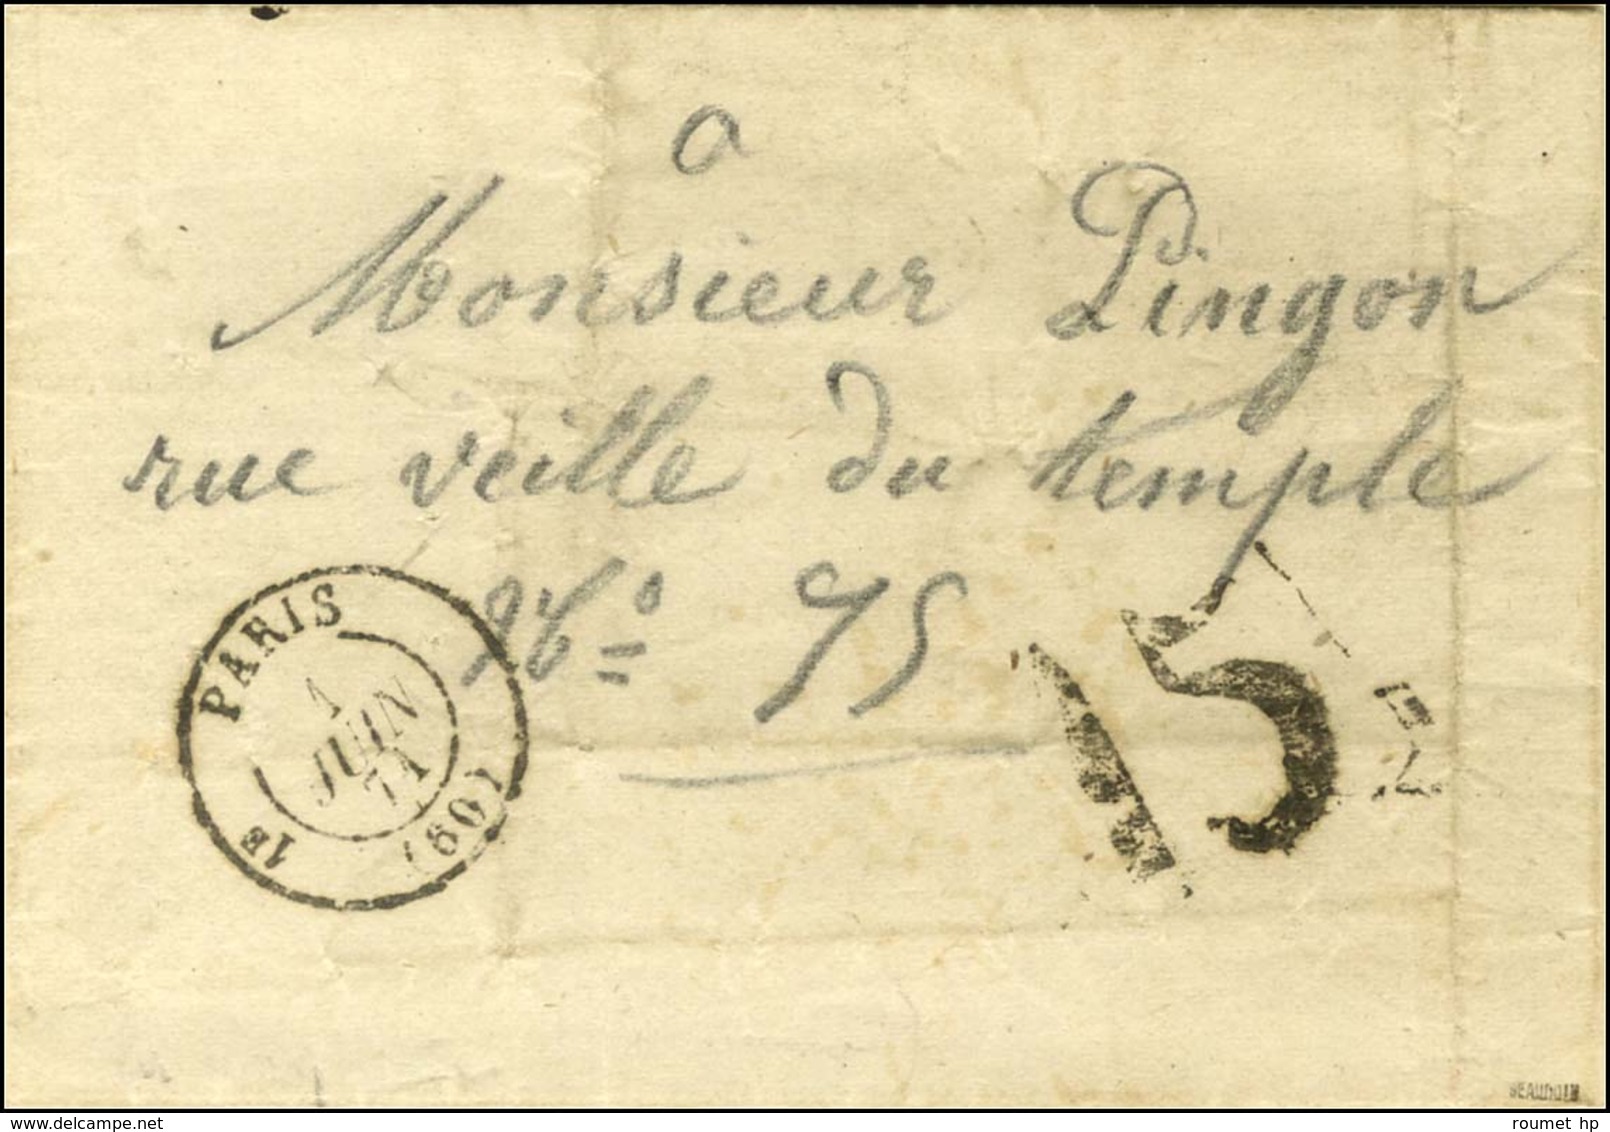 a
Monsieur Pingon
rue veille du temple
No 75
PARIS
1
JUIN
71
(60)
1E
15
BEAUDOIN
delcampe.net
roumet hp